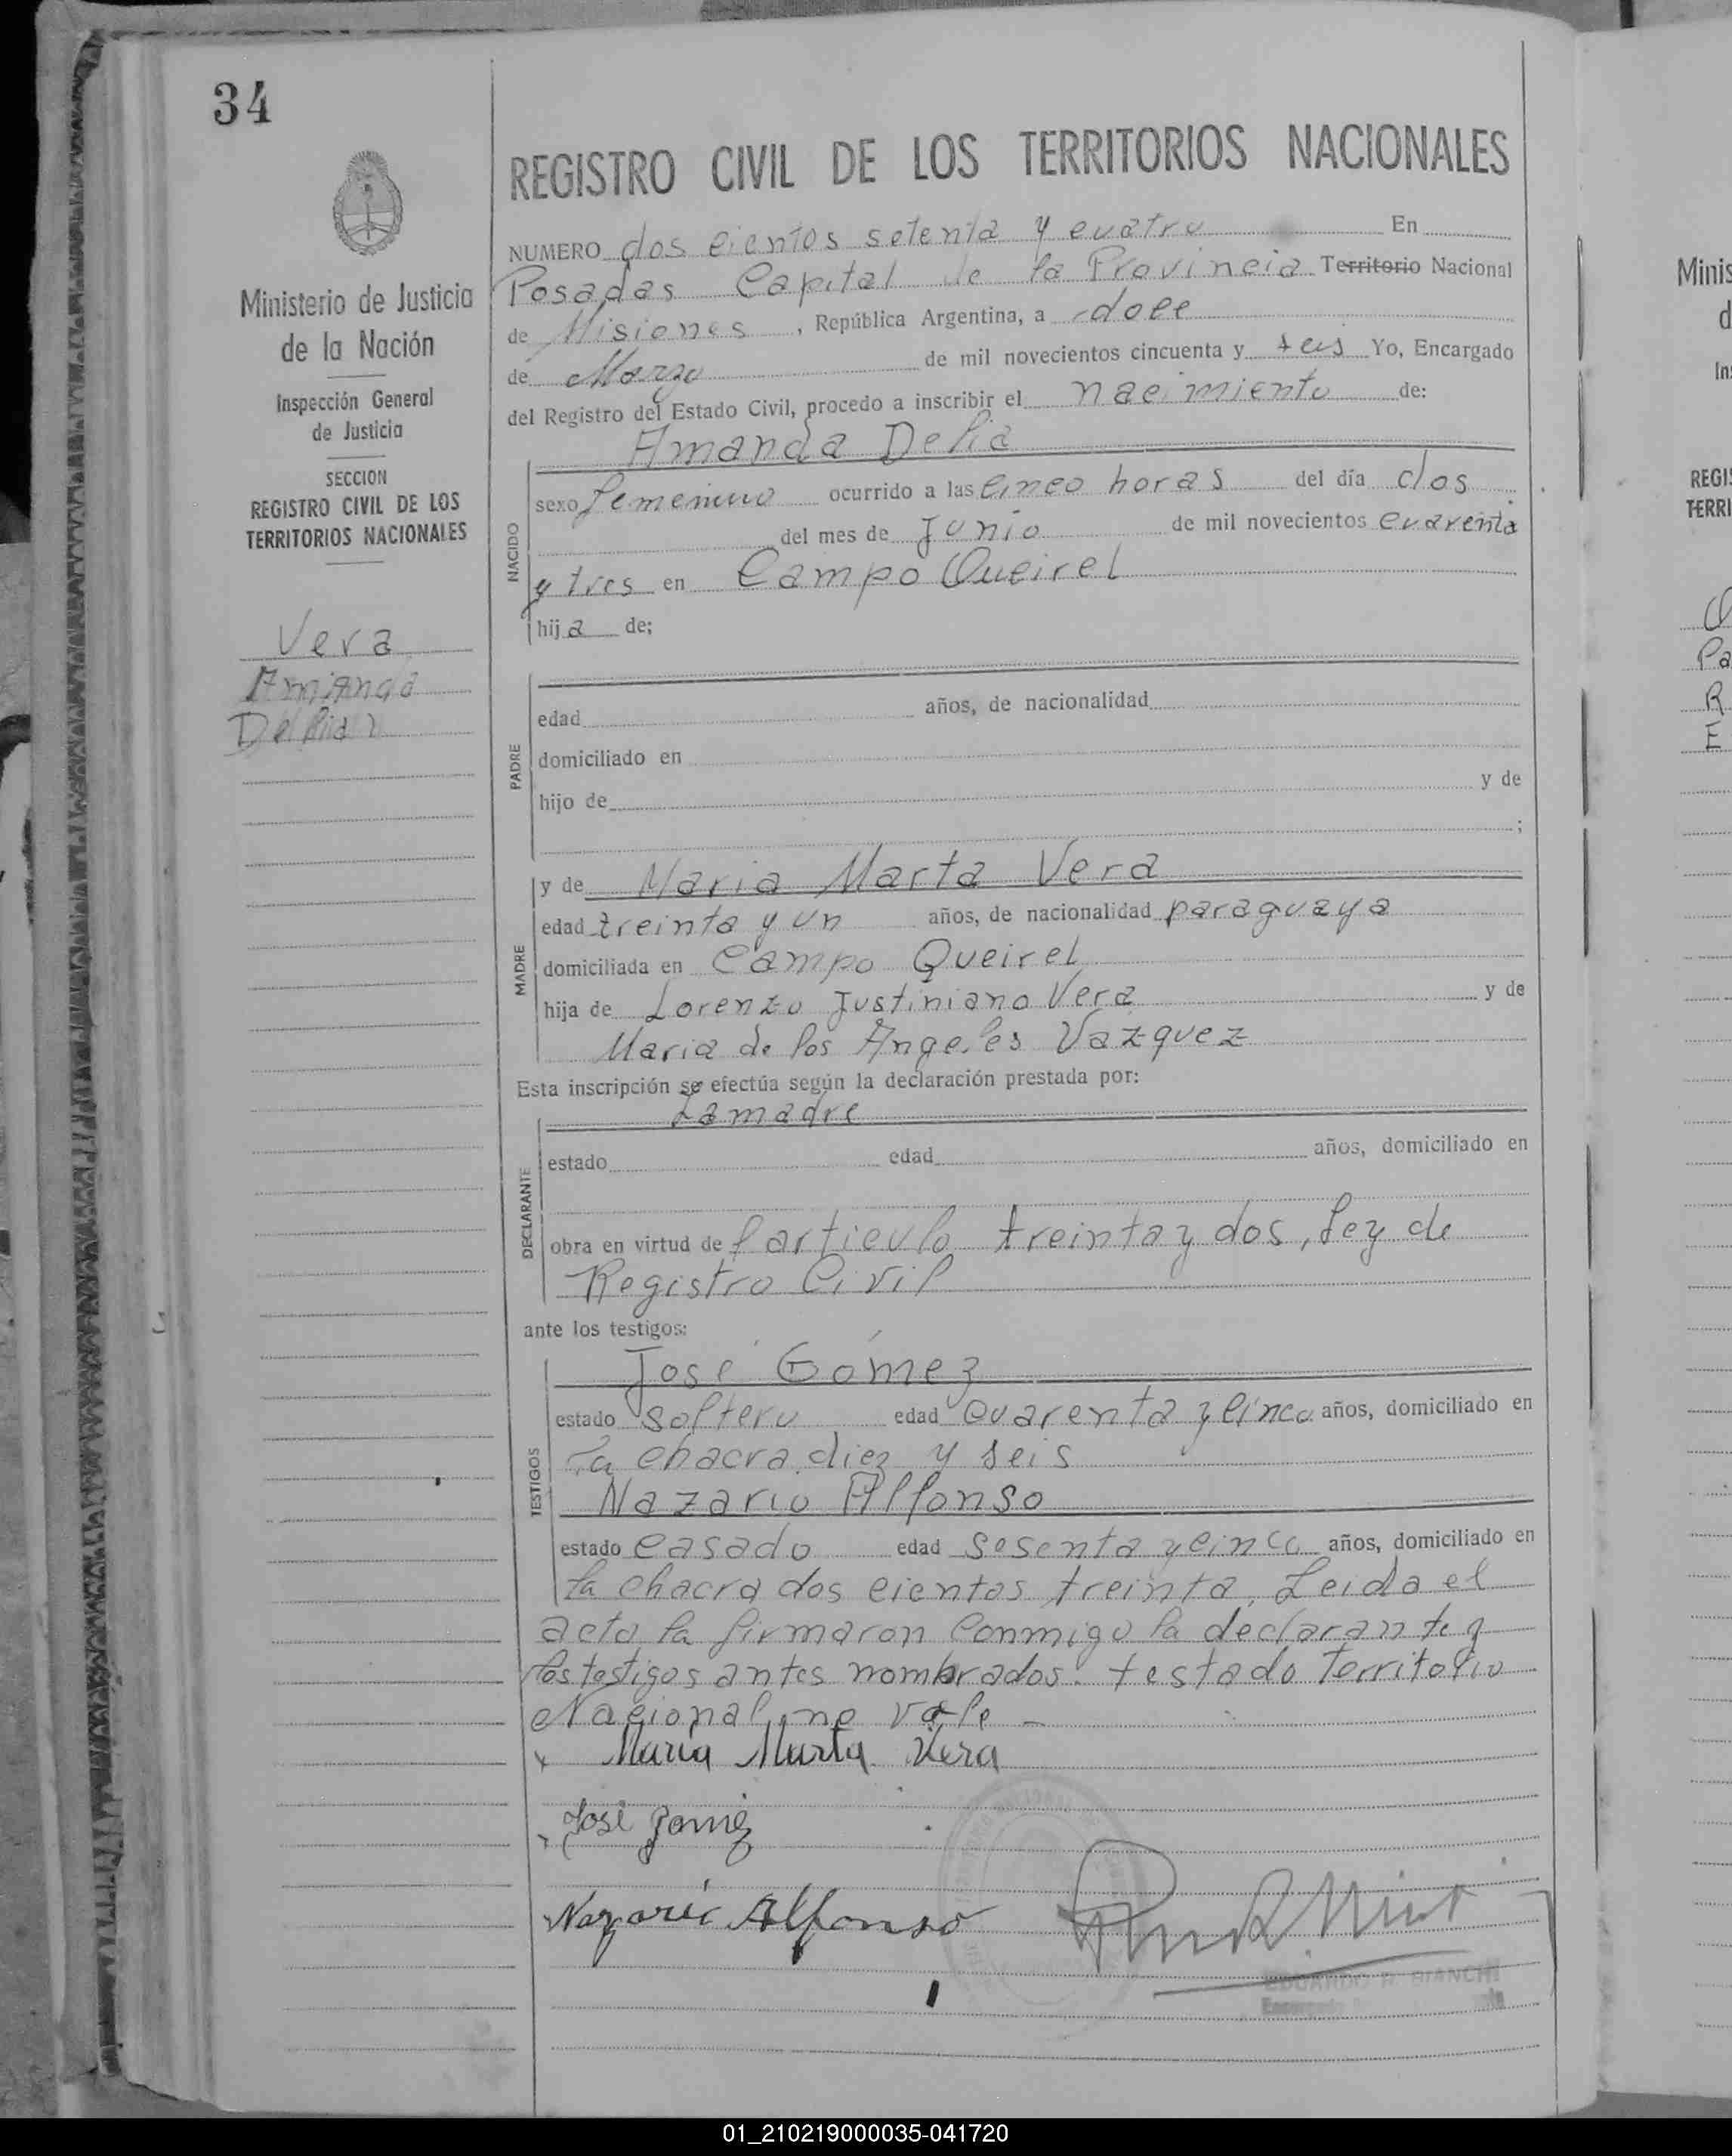 34
REGISTRO CIVIL DE LOS TERRITORIOS NACIONALES
Ministerio de Justicia
de la Nación
Inspección General
de Justicia
SECCION
REGISTRO CIVIL DE LOS
TERRITORIOS NACIONALES
Vera
Amanda
Delia
NUMERO dos cientos setenta y cuatro En
Posadas Capital de la Provincia Territorio Nacional
de Misiones, República Argentina, a doce
de Marzo de mil novecientos cincuenta y seis Yo, Encargado
del Registro del Estado Civil, procedo a inscribir el nacimiento de:
Amanda Delia
NACIDO
sexo femenino ocurrido a las cinco horas del día dos
del mes de Junio de mil novecientos cuarenta
y tres en Campo Queirel
hija de;
PADRE
edad años, de nacionalidad
domiciliado en
hijo de y de
;
MADRE
y de Maria Marta Vera
edad treinta y un años, de nacionalidad paraguaya
domiciliada en Campo Queirel
hija de Lorenzo Justiniano Vera y de
Maria de los Angeles Vazquez
Esta inscripción se efectúa según la declaración prestada por:
La madre
DECLARANTE
estado edad años, domiciliado en
obra en virtud de l articulo treinta y dos, ley de
Registro Civil
ante los testigos:
TESTIGOS
José Gómez
estado soltero edad cuarenta y cinco años, domiciliado en
la chacra diez y seis
Nazario Alfonso
estado casado edad sesenta y cinco años, domiciliado en
la chacra dos cientos treinta, Leida el
acta la firmaron conmigo la declarante y
los testigos antes nombrados. testado Territorio
Nacional no vale —
x Maria Marta Vera
José Gomez
Nazario Alfonso
EDUARDO R. BIANCHI
Encargado
Minis
d
In
REGI
TERRI
Pa
R
E
01_210219000035-041720